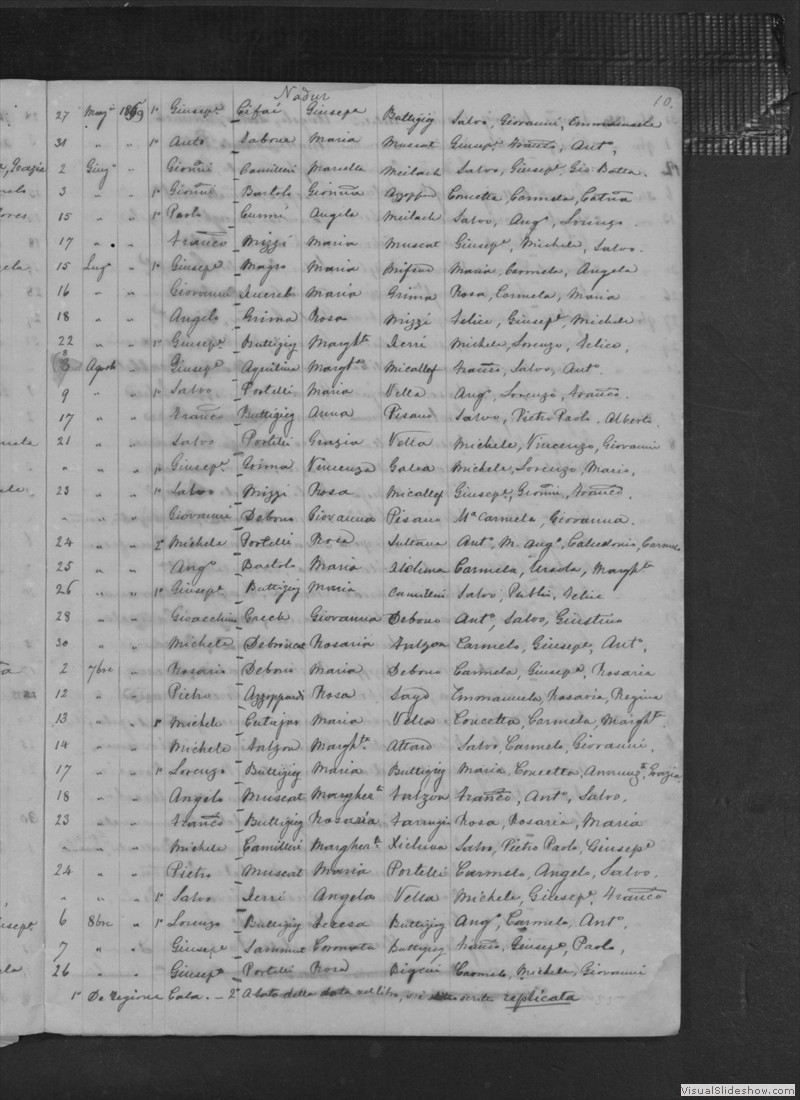 Nadur
10.
27 Mag° 1869 1° Giusep.e Cifai Giusep.a Buttigieg Salvo, Giovanni, Emmanuele
31 " " 1° Anto Saboua Maria Muscat Giusep.e, Franc.o, Ant.o,
2 Giug° " Gionni Camilleri Marcella Meilach Salvo, Giusep.e Gio Batta.
3 " " 1° Gionni Bartolo Gionna Azzoppard Concetta, Carmela, Catna
15 " " 1° Paolo Cummi Angela Meilach Salvo, Ang.o, Lorenzo.
17 " " Franco Mizzi Maria Muscat Giusep.e, Michele, Salvo.
15 Lug° " 1° Giusep.e Magro Maria Mifsud Maria, Carmela, Angela
16 " " Giovanni Xuereb Maria Grima Rosa, Carmela, Maria
18 " " Angelo Grima Rosa Mizzi Felice, Giusep.e, Michele
22 " " 1° Giusep.e Buttigieg Margh.ta Xerri Michele, Lorenzo, Felice,
3 Agosto " Giusep.e Agiutina Margh.ta Micallef Franco, Salvo, Ant.o
9 " " 1° Salvo Portelli Maria Vella Ang.o, Lorenzo, Franco.
17 " " Franco Buttigieg Anna Pisano Salvo, Pietro Paolo, Alberto.
21 " " Salvo Portelli Grazia Vella Michele, Vincenzo, Giovanni
" " " 1° Giusep.e Grima Vincenza Galea Michele, Lorenzo, Mario,
23 " " 1° Salvo Mizzi Rosa Micallef Giusep.e, Gionni, Franco.
" " " Giovanni Debono Giovanna Pisano M.a Carmela, Giovanna.
24 " " 2° Michele Portelli Rosa Sultana Ant.a, M. Ang.a, Calcedonia, Carmela
25 " " Ang.o Bartolo Maria Xicluna Carmela, Ursola, Margh.ta
26 " " 1° Giusep.e Buttigieg Maria Camilleri Salvo, Publii, Felice
28 " " Gioacchino Grech Giovanna Debono Ant.o, Salvo, Giustino
30 " " Michele Debrincat Rosaria Falzon Carmelo, Giusep.e, Ant.o,
2 7bre " Rosario Debono Maria Debono Carmela, Giusep.a, Rosaria
12 " " Pietro Azzoppardi Rosa Sayd Emmanuela, Rosaria, Regina
13 " " 1° Michele Cutajar Maria Vella Concetta, Carmela, Margh.ta
14 " " Michele Falzon Margh.ta Attard Salvo, Carmelo, Giovanni.
17 " " 1° Lorenzo Buttigieg Maria Buttigieg Maria, Concetta, Annunz.a, Grazia
18 " " Angelo Muscat Margher.ta Falzon Franco, Ant.o, Salvo.
23 " " Franco Buttigieg Rosaria Farrugia Rosa, Rosaria, Maria
" " " Michele Camilleri Margher.ta Xicluna Salvo, Pietro Paolo, Giusep.e
24 " " Pietro Muscat Maria Portelli Carmelo, Angelo, Salvo.
" " " 1° Salvo Xerri Angela Vella Michele, Giusep.e, Franco
6 8bre " 1° Lorenzo Buttigieg Teresa Buttigieg Ang.o, Carmelo, Ant.o,
7 " " Giusep.e Sammut Coronata Buttigieg Franco, Giusep.e, Paolo,
26 " " Giusep.e Portelli Rosa Bigeni Carmelo, Michele, Giovanni
1° De regione Cala. — 2° A lato della data nel libro, vi scritto replicata
VisualSlideshow.com